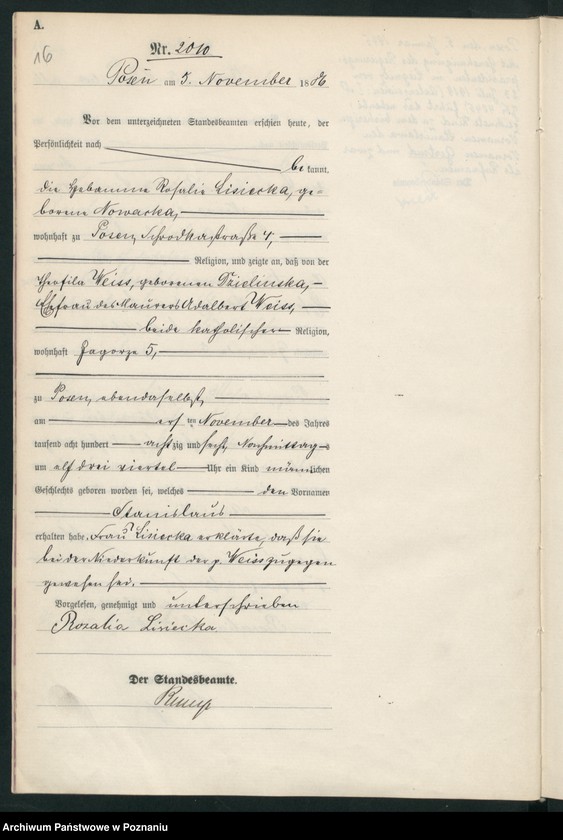 A.
16
Nr. 2010
Posen am 5. November 1886
Vor dem unterzeichneten Standesbeamten erschien heute, der
Persönlichkeit nach
bekannt,
die Hebamme Rosalie Lisiecka, ge-
borene Nowacka,
wohnhaft zu Posen, Schrodkastraße 4,
Religion, und zeigte an, daß von der
Theofila Weiss, geborenen Dzielinska,
Ehefrau des Maurers Adalbert Weiss,
beide katholischer Religion,
wohnhaft Zagorze 5,
zu Posen, ebendaselbst,
am ersten November des Jahres
tausend acht hundert achtzig und sechs, Nachmittags
um elf drei viertel Uhr ein Kind männlichen
Geschlechts geboren worden sei, welches den Vornamen
Stanislaus
erhalten habe. Frau Lisiecka erklärte, daß sie
bei der Niederkunft der p. Weiss zugegen
gewesen sei.
Vorgelesen, genehmigt und unterschrieben
Rozalia Lisiecka
Der Standesbeamte.
Archiwum Państwowe w Poznaniu